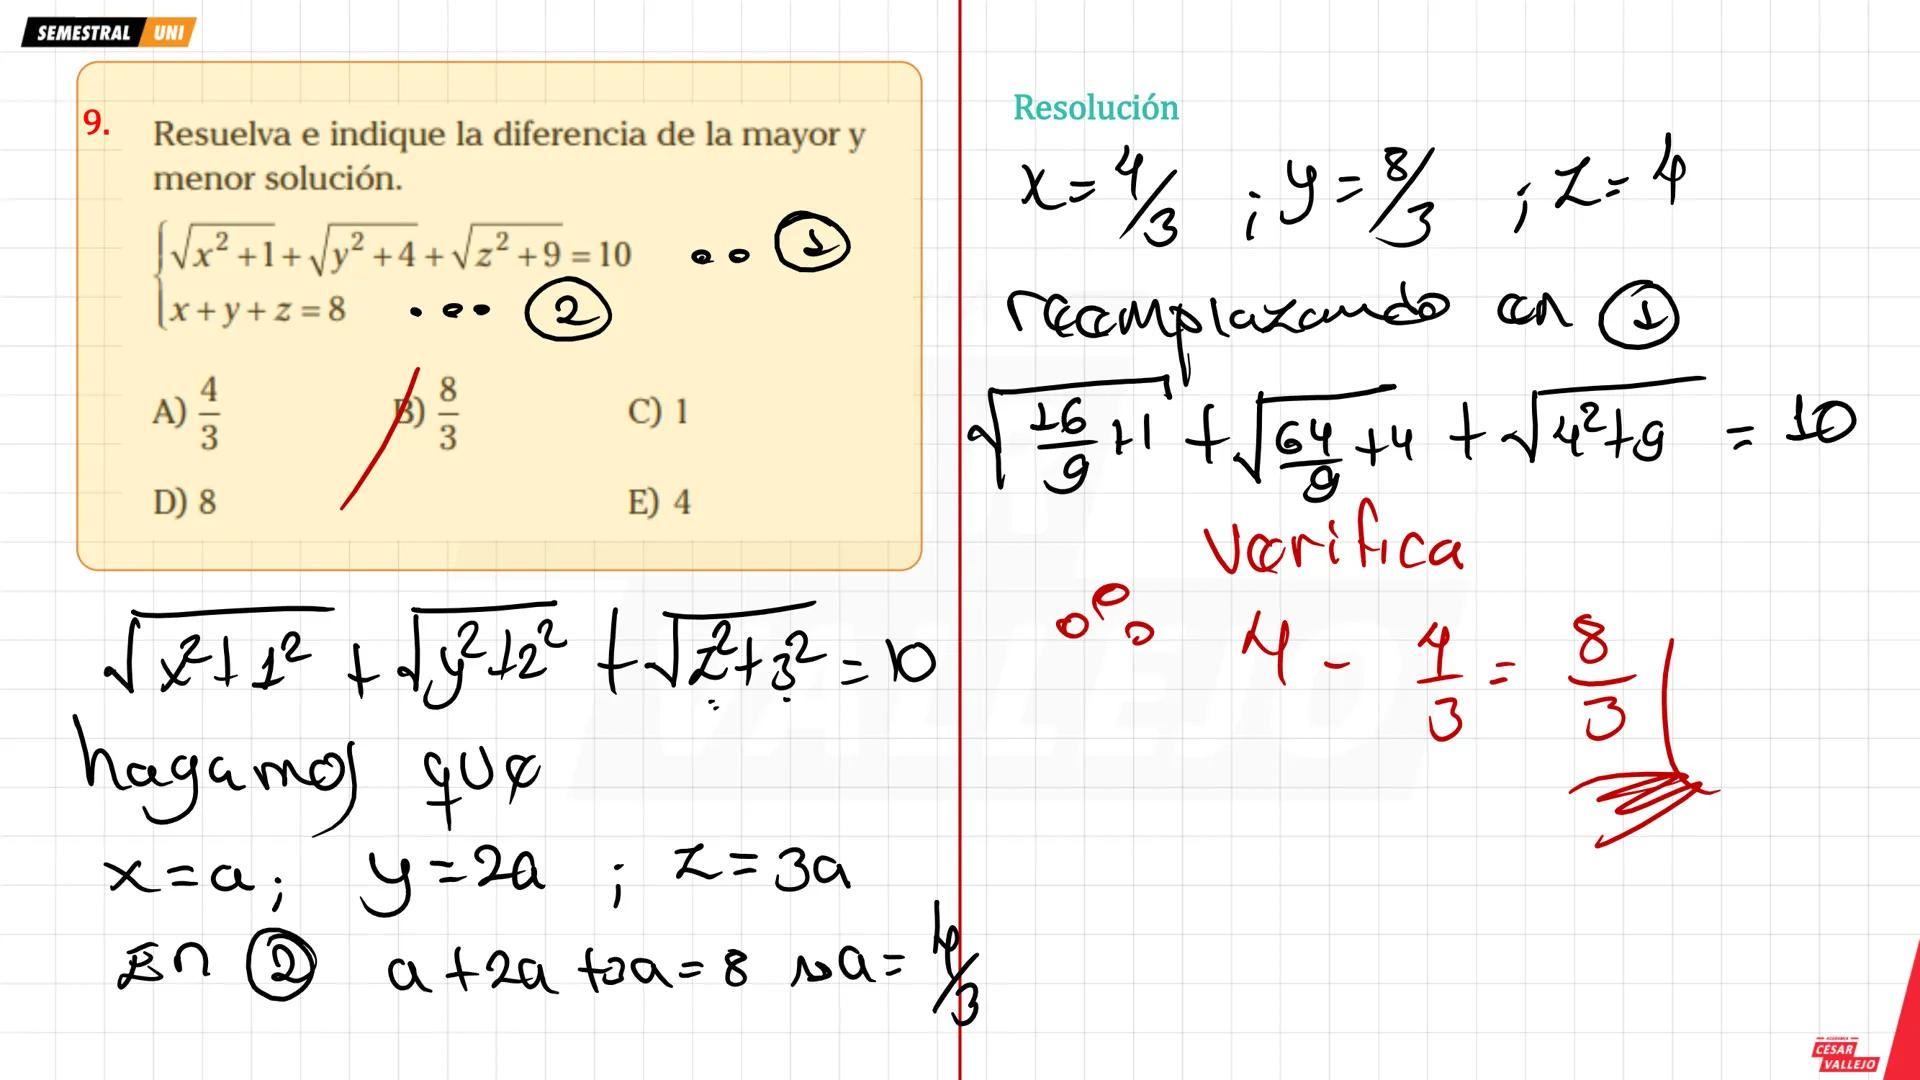 SEMESTRAL UNI
9. Resuelva e indique la diferencia de la mayor y
menor solución.
√(x²+1) + √(y²+4) + √(z²+9) = 10 •• ①
x+y+z=8 ••• ②
A) 4/3 B) 8/3 C) 1
D) 8 E) 4
√(x²+1²) + √(y²+2²) + √(z²+3²) = 10
hagamos que
x=a; y=2a ; z=3a
En ② a+2a+3a=8 → a=4/3
Resolución
x=4/3 ; y=8/3 ; z=4
reemplazando en ①
√(16/9+1) + √(64/9+4) + √(4²+9) = 10
verifica
∴ 4 - 4/3 = 8/3
ACADEMIA
CÉSAR
VALLEJO